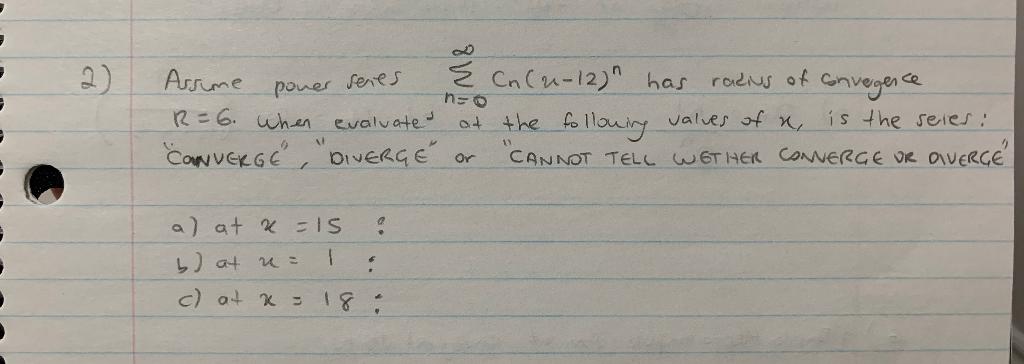 2) Assume power series ∞ Σ n=0 Cn(x-12)ⁿ has radius of convergence
R=6. When evaluated at the following values of x, is the series:
"CONVERGE", "DIVERGE" or "CANNOT TELL WETHER CONVERGE OR DIVERGE"
a) at x = 15 :
b) at x = 1 :
c) at x = 18 :